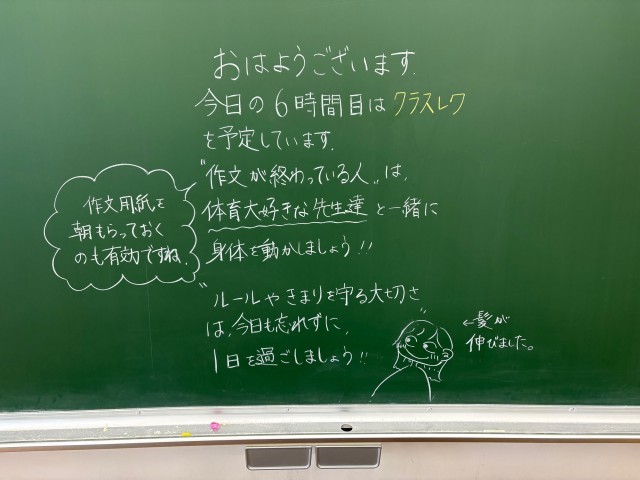 おはようございます.
今日の6時間目はクラスレク
を予定しています.
"作文が終わっている人"は,
体育大好きな先生達と一緒に
身体を動かしましょう!!
作文用紙を
朝もらっておく
のも有効ですね.
"ルールやきまりを守る大切さ
は,今日も忘れずに,
1日を過ごしましょう!!
←髪が
伸びました。